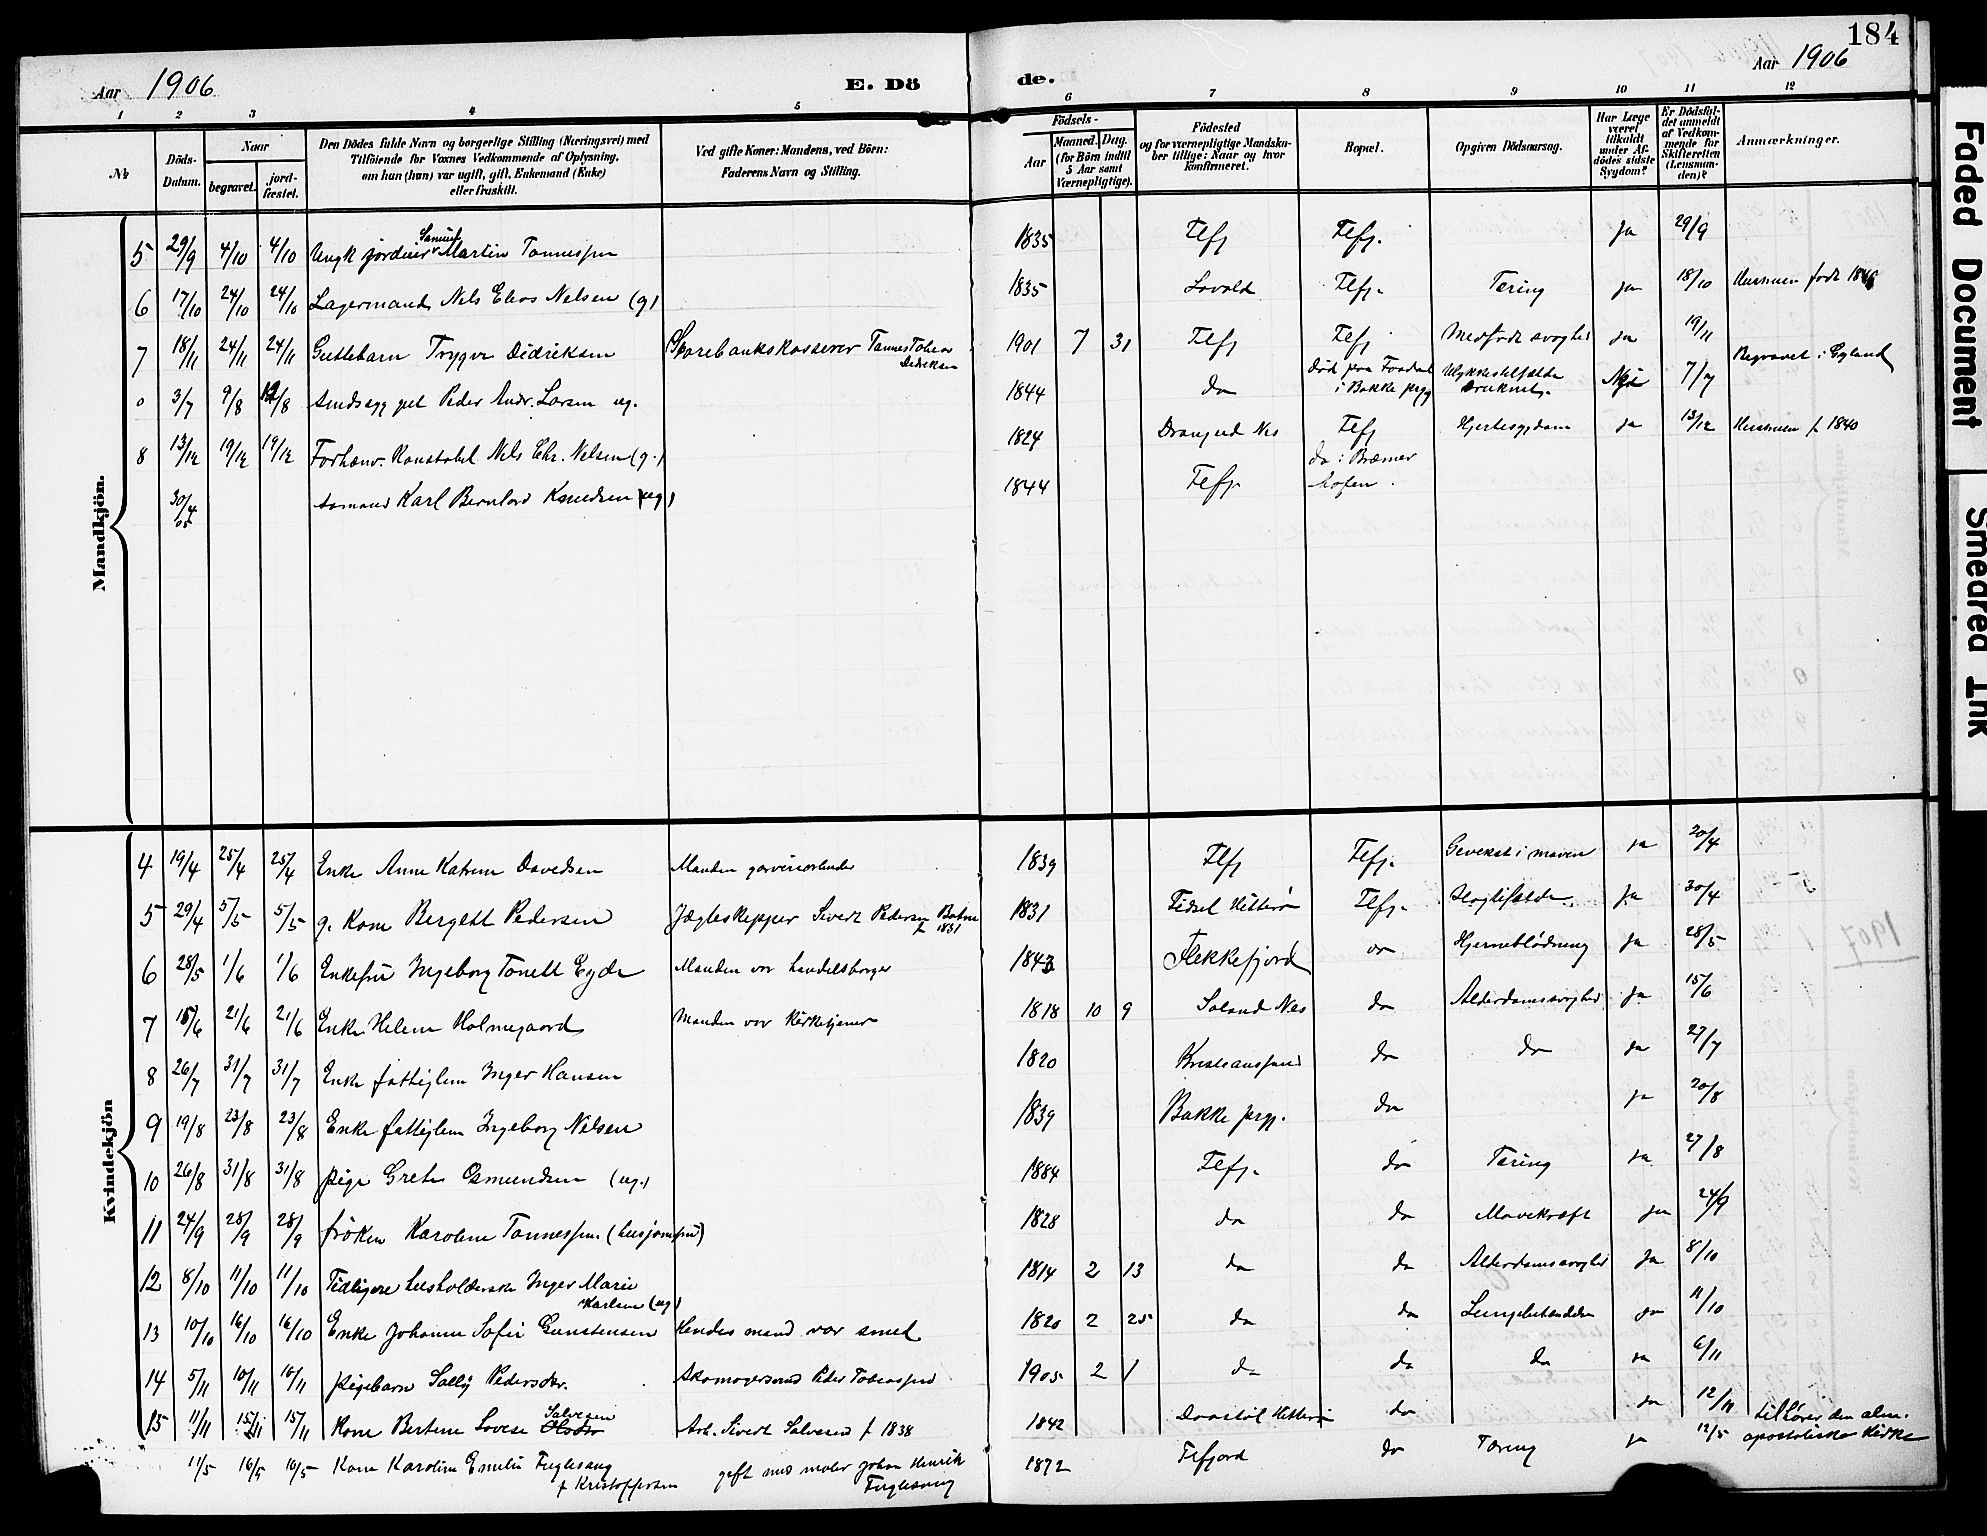 184
Aar 1906 E. Dö de. Aar 1906
1 2 3 4 5 6 7 8 9 10 11 12
№
Döds-Datum.
Naar
begravet. jord-fæstet.
Den Dödes fulde Navn og borgerlige Stilling (Næringsvei) med
Tilföiende for Voxnes Vedkommende af Oplysning,
om han (hun) var ugift, gift, Enkemand (Enke)
eller fraskilt.
Ved gifte Koner: Mandens, ved Börn:
Faderens Navn og Stilling.
Födsels-
Aar Maaned. Dag.
(for Börn indtil
5 Aar samt
Værnepligtige).
Födested
og for værnepligtige Mandska-
ber tillige: Naar og hvor
Konfirmeret.
Bopæl.
Opgiven Dödsaarsag.
Har Læge
været
tilkaldt
under Af-
dödes sidste
Sygdom?
Er Dödsfal-
det anmeldt
af Vedkom-
mende for
Skifteretten
(Lensman-
den)?
Anmærkninger.
Mandkjön.
5 29/9 4/10 4/10 Ungk Samuel Martin Tønnessen 1835 Flfj Flfj. ja 29/9
6 17/10 24/10 24/10 Lagermand Nels Elias Nelsen (g) 1835 Lovold Flfj. Tæring ja 18/10 Hustruen født
7 18/11 24/11 24/11 Guttebarn Trygve Didriksen Sparebankskasserer Tønnes Tobias Didriksen 1901 7 31 Flfj Flfj Medfødt svaghed ja 19/11
0 3/7 9/8 12/8 Peder Andr. Larsen ug. 1844 do død paa i Bakke prgj Ulykkestilfælde druknet. Nei 7/7 Begravet i Gyland
8 13/12 19/12 19/12 Forhenv. Konstabel Nels Chr. Nelsen (g.) 1824 Nes Flfj Hjertesygdom ja 13/12 Hustruen f 1840
30/4 05 Sømand Karl Bernhard Knudsen (ug) 1844 Flfj. do i Bremer hafen.
Kvindekjön
4 19/4 25/4 25/4 Enke Anne Katrine Davidsen Manden garveriarbeider 1839 Flfj Flfj. Gevekst i maven ja 20/4
5 29/4 5/5 5/5 g. Kone Bergett Pedersen Jægteskipper Sivert Pedersen f. 1831 1831 Fidsel Hitterø Flfj. Slagtilfælde ja 30/4
6 28/5 1/6 1/6 Enkefru Ingeborg Tonett Eyde Manden var handelsborger 1843 Flekkefjord do Hjerneblødning ja 28/5
7 15/6 21/6 21/6 Enke Helene Holmegaard Manden var Kirketjener 1818 10 9 Soland Nes do Alderdomssvaghed ja 15/6
8 26/7 31/7 31/7 Enke fattiglem Inger Hansen 1820 Kristianssand do do ja 27/7
9 19/8 23/8 23/8 Enke fattiglem Ingeborg Nelsen 1839 Bakke prgj. do ja 20/8
10 26/8 31/8 31/8 pige Grete Osmundsen (ug.) 1884 Flfj. do Tæring ja 27/8
11 24/9 28/9 28/9 frøken Karoline Tønnessen. (husjomfru) 1828 do do Mavekræft ja 24/9
12 8/10 11/10 11/10 Tidligere husholderske Inger Marie Karlsen (ug) 1814 2 13 do do Alderdomssvaghed ja 8/10
13 10/10 16/10 16/10 Enke Johanne Sofie Gunstensen Hendes mand var smed 1820 2 25 do do Lungebetændelse ja 11/10
14 5/11 10/11 10/11 pigebarn Sally Pedersdtr. Skomagersvend Peder Tobiassen 1905 2 1 do do do ja 6/11
15 11/11 15/11 15/11 Kone Bertine Lovise Salvesen Arb. Sivert Salvesen f 1838 1842 Hitterø do ja 12/11
11/5 16/5 16/5 Kone Karoline Emelie Fuglesang f Kristoffersen gift med maler Johan Henrik Fuglesang 1872 Flfjord do Tæring ja 12/5 tilhører den alm. apostoliske Kirke
1907
Faded Document
Smeared Ink